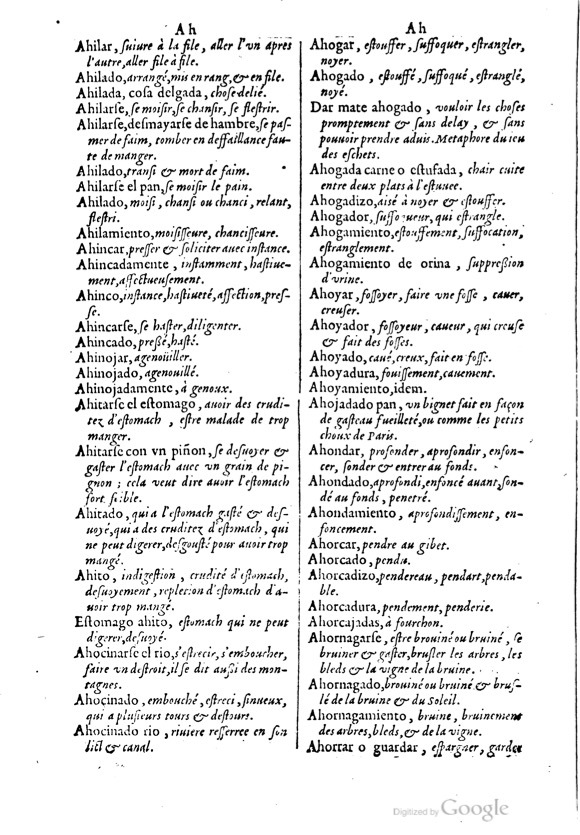 Ah
Ahilar, ſuiure à la file, aller l'vn apres
l'autre, aller file à file.
Ahilado, arrangé, mis en rang, & en file.
Ahilada, coſa delgada, choſe delié.
Ahilarſe, ſe moiſir, ſe chanſir, ſe fleſtrir.
Ahilarſe, deſmayarſe de hambre, ſe paſ-
mer de faim, tomber en deffaillance fau-
te de manger.
Ahilado, tranſi & mort de faim.
Ahilarſe el pan, ſe moiſir le pain.
Ahilado, moiſi, chanſi ou chanci, relant,
fleſtri.
Ahilamiento, moiſiſſeure, chanciſſeure.
Ahincar, preſſer & ſoliciter auec inſtance.
Ahincadamente, inſtamment, haſtiue-
ment, affectueuſement.
Ahinco, inſtance, haſtiueté, affection, preſ-
ſe.
Ahincarſe, ſe haſter, diligenter.
Ahincado, preßé, haſté.
Ahinojar, agenoüiller.
Ahinojado, agenouillé.
Ahinojadamente, à genoux.
Ahitarſe el eſtomago, auoir des crudi-
tez d'eſtomach, eſtre malade de trop
manger.
Ahitarſe con vn piñon, ſe deſuoyer &
gaſter l'eſtomach auec vn grain de pi-
gnon; cela veut dire auoir l'eſtomach
fort foible.
Ahitado, qui a l'eſtomach gaſté & deſ-
uoyé, qui a des cruditez d'eſtomach, qui
ne peut digerer, deſgouſté pour auoir trop
mangé.
Ahito, indigeſtion, crudité d'eſtomach,
deſuoyement, repletion d'eſtomach d'a-
uoir trop mangé.
Eſtomago ahito, eſtomach qui ne peut
digerer, deſuoyé.
Ahocinarſe el rio, s'eſtrecir, s'emboucher,
faire vn deſtroit, il ſe dit außi des mon-
tagnes.
Ahocinado, embouché, eſtreci, ſinueux,
qui a pluſieurs tours & deſtours.
Ahocinado rio, riuiere reſſerree en ſon
lict & canal.
Ah
Ahogar, eſtouffer, ſuffoquer, eſtrangler,
noyer.
Ahogado, eſtouffé, ſuffoqué, eſtranglé,
noyé.
Dar mate ahogado, vouloir les choſes
promptement & ſans delay, & ſans
pouuoir prendre aduis. Metaphore du ieu
des eſchets.
Ahogada carne o eſtufada, chair cuite
entre deux plats à l'eſtuuee.
Ahogadizo, aisé à noyer & eſtouffer.
Ahogador, ſuffoqueur, qui eſtrangle.
Ahogamiento, eſtouffement, ſuffocation,
eſtranglement.
Ahogamiento de orina, ſuppreßion
d'vrine.
Ahoyar, foſſoyer, faire vne foſſe, cauer,
creuſer.
Ahoyador, foſſoyeur, caueur, qui creuſe
& fait des foſſes.
Ahoyado, caué, creux, fait en foſſe.
Ahoyadura, fouiſſement, cauement.
Ahoyamiento, idem.
Ahojadado pan, vn bignet fait en façon
de gaſteau fueilleté, ou comme les petits
choux de Paris.
Ahondar, profonder, aprofondir, enfon-
cer, ſonder & entrer au fonds.
Ahondado, aprofondi, enfoncé auant, ſon-
dé au fonds, penetré.
Ahondamiento, aprofondiſſement, en-
foncement.
Ahorcar, pendre au gibet.
Ahorcado, pendu.
Ahorcadizo, pendereau, pendart, penda-
ble.
Ahorcadura, pendement, penderie.
Ahorcajadas, à fourchon.
Ahornagarſe, eſtre brouiné ou bruiné, ſe
bruiner & gaſter, bruſler les arbres, les
bleds & la vigne de la bruine.
Ahornagado, brouiné ou bruiné & bruſ-
lé de la bruine & du Soleil.
Ahornagamiento, bruine, bruinement
des arbres, bleds, & de la vigne.
Ahorrar o guardar, eſpargner, garder
Digitized by Google